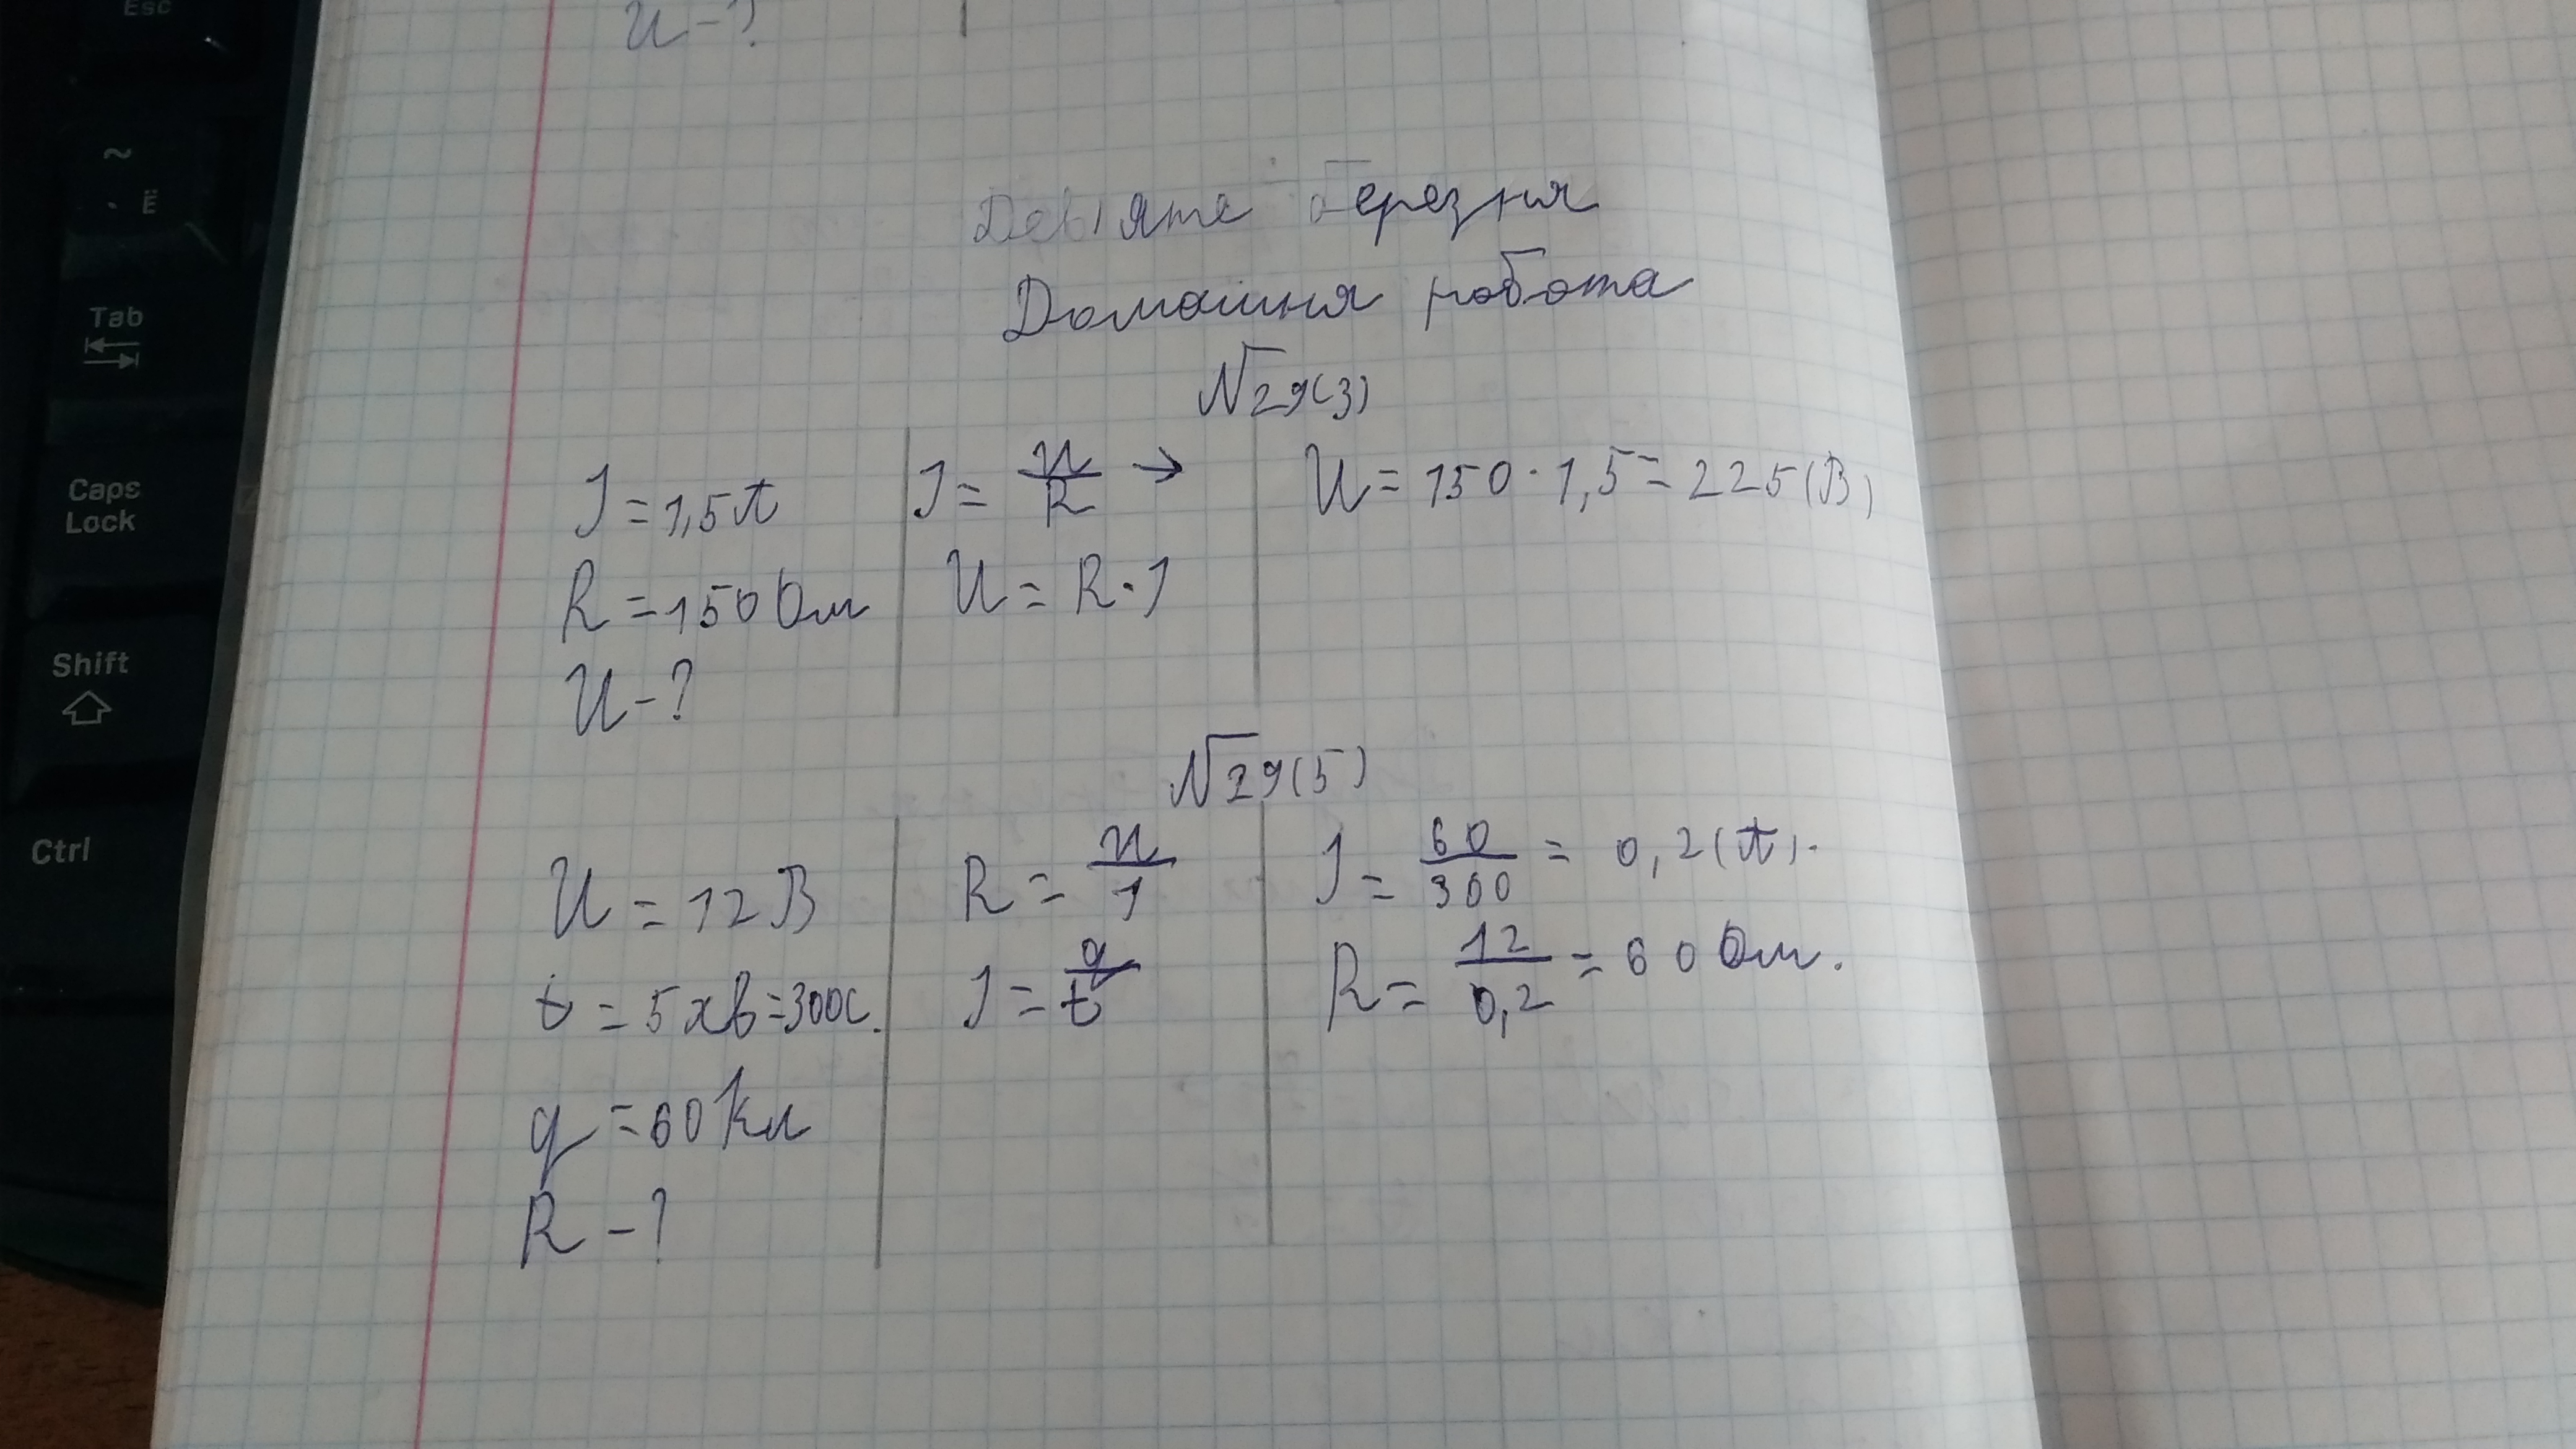 Esc
~
Ё
Tab
Caps Lock
Shift
Ctrl
U - ?
Дев'яте березня
Домашня робота
№29(3)
I = 1,5 А
R = 150 Ом
U - ?
I = U/R →
U = R · I
U = 150 · 1,5 = 225 (В)
№29(5)
U = 12 В
t = 5 хв = 300с.
q = 60 Кл
R - ?
R = U/I
I = q/t
I = 60/300 = 0,2 (А).
R = 12/0,2 = 60 Ом.